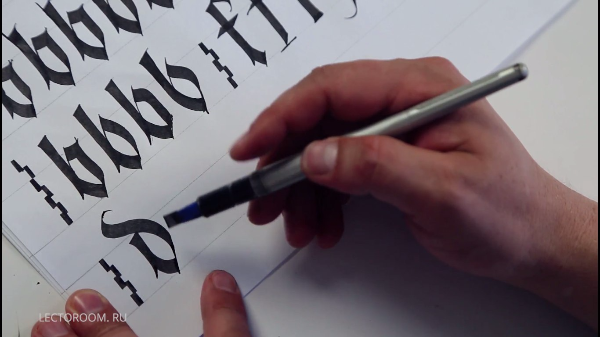 bbbb
bbbb
d
LECTOROOM. RU